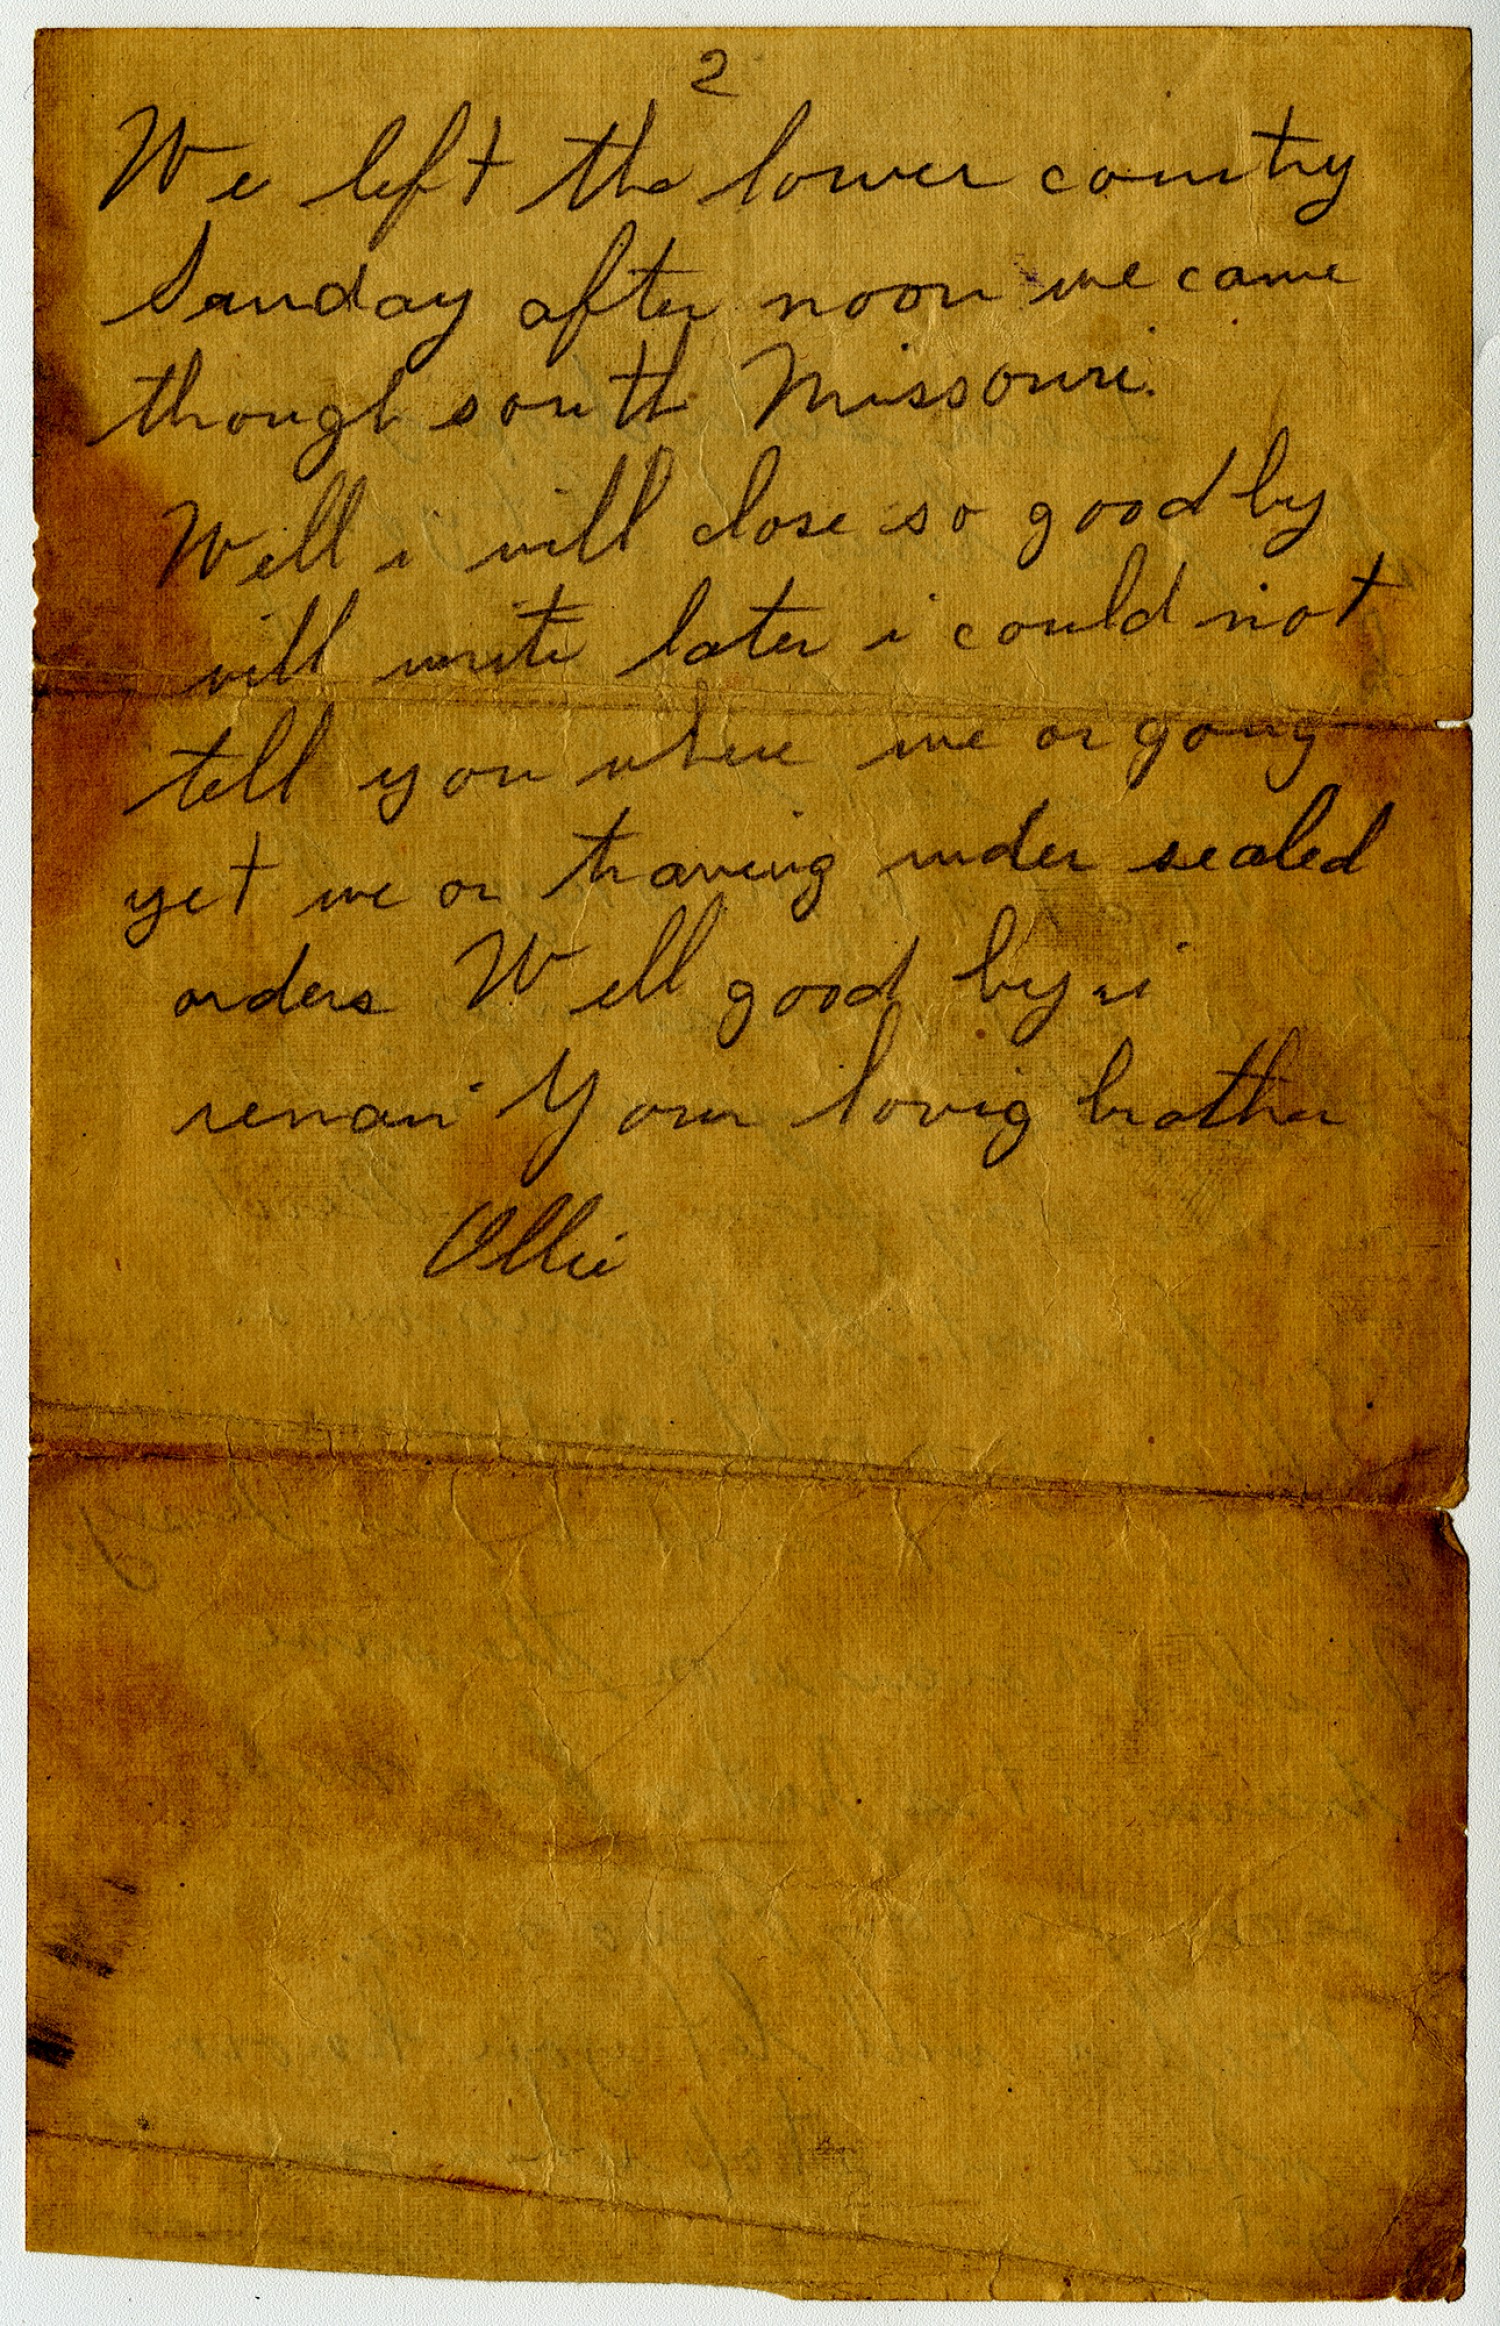 2
We left the lower country
Sunday after noon we came
though south Missouri.
Well i will close so good by
will write later i could not
tell you where we or going
yet we or traveing under sealed
orders Well good by i
remain Your lovig brother
Ollie